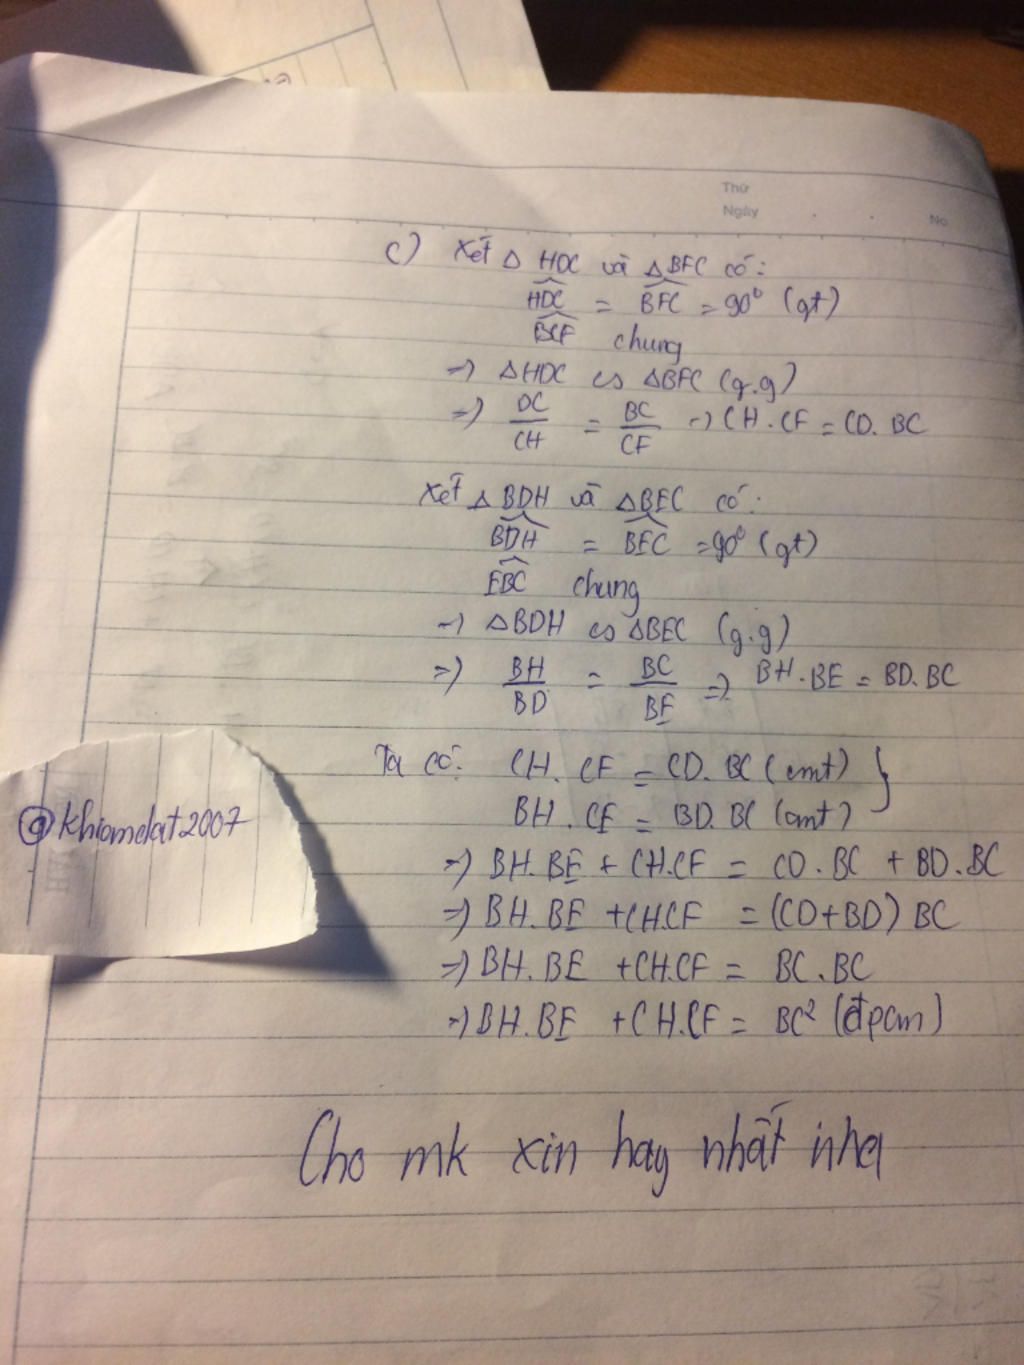 Thứ
Ngày
No
c) Xét △ HDC và △BFC có:
HDC = BFC = 90° (gt)
BCF chung
⇒ △HDC ∽ △BFC (g.g)
⇒ DC/CH = BC/CF ⇒ CH.CF = CD.BC
Xét △ BDH và △BEC có:
BDH = BEC = 90° (gt)
EBC chung
⇒ △BDH ∽ △BEC (g.g)
⇒ BH/BD = BC/BE ⇒ BH.BE = BD.BC
Ta có: CH.CF = CD.BC (cmt) }
BH.CE = BD.BC (cmt)
⇒ BH.BE + CH.CF = CD.BC + BD.BC
⇒ BH.BE + CH.CF = (CD+BD) BC
⇒ BH.BE + CH.CF = BC.BC
⇒ BH.BE + CH.CF = BC² (đpcm)
@khiomelat2007
Cho mk xin hay nhất nha